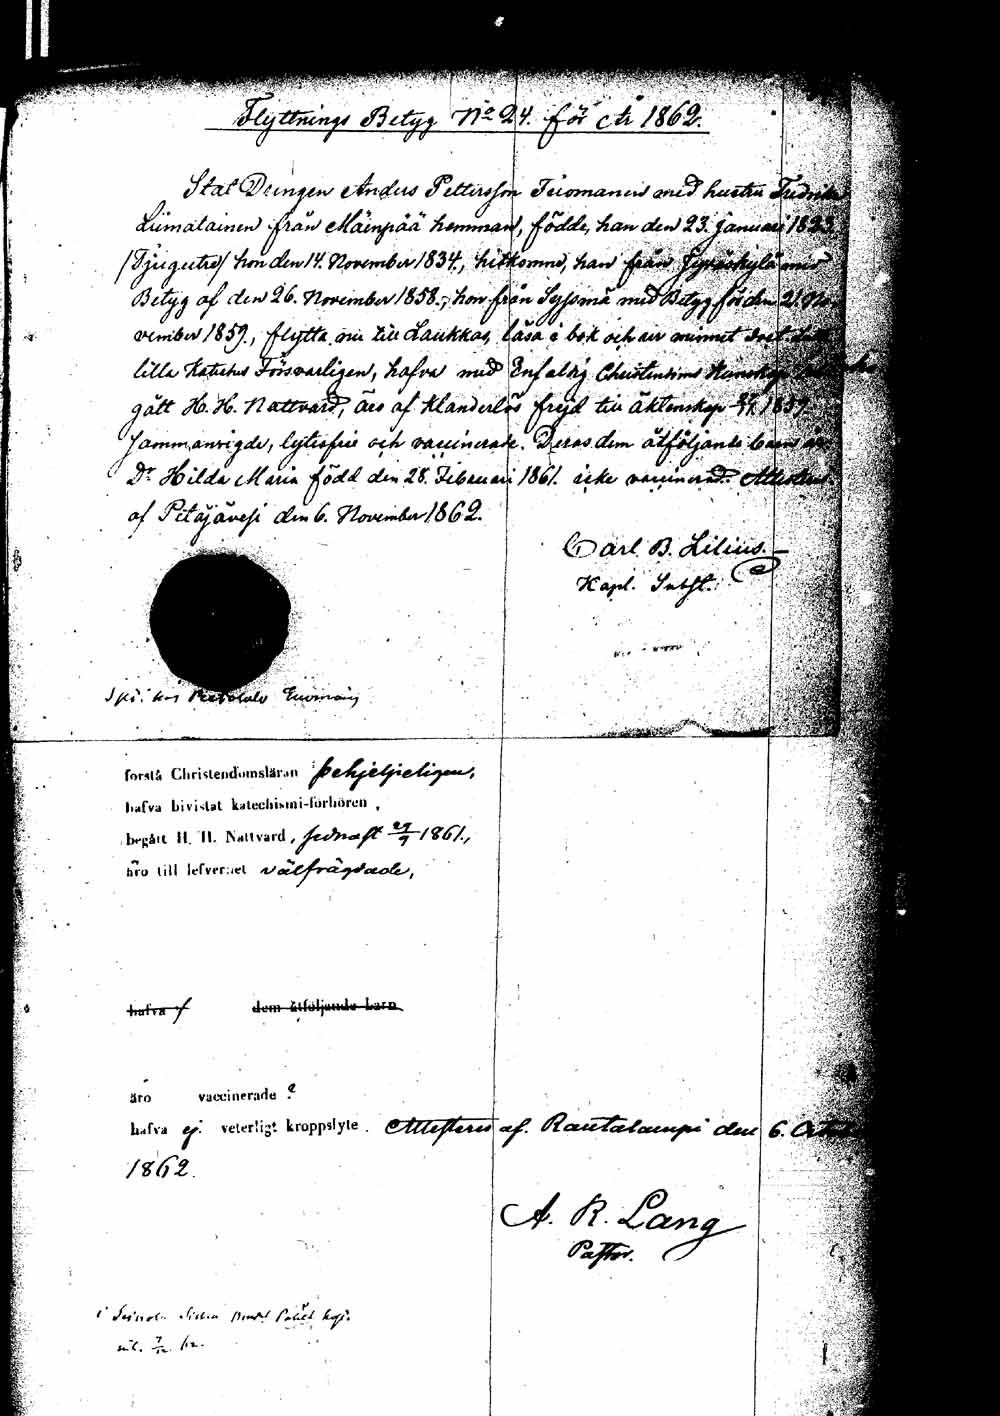 Flyttnings Betyg No 24. för år 1862.
Stat Drengen Anders Pettersson med hustru Fredrika
Liimatainen från Mäinpää hemman, födde, han den 23. Januari 1823.
/Tjugutre/ hon den 14. November 1834., hitkomne, han från Jyväskylä med
Betyg af den 26. November 1858., hon från Syssmä med Betyg för den 21. No
vember 1859., flytta nu till Laukkas, läsa i bok och ur minnet
lilla Katches Försvarligen, hafva med Enfaldig Christendoms Kunskap
gått H. H. Nattvard, äro af Klanderlös frejd till äktenskap 1859
sammanvigde, lytesfrie och vaccinerade. Deras dem åtföljande barn är
Dr Hilda Maria född den 28. Februari 1861. icke vaccinerad. Attesteras
af Petäjävesi den 6. November 1862.
Carl B. Lilius.
Kapl. Subst.
förstå Christendomsläran behjelpeligen,
hafva bivistat katechismi-förhören,
begått H. H. Nattvard, senast 29/9 1861.,
äro till lefvernet välfrägdade,
hafva ej dem åtföljande barn
äro vaccinerade?
hafva ej veterligt kroppslyte. Attesteras af. Rautalampi den 6.
1862.
A. R. Lang
Pastor.